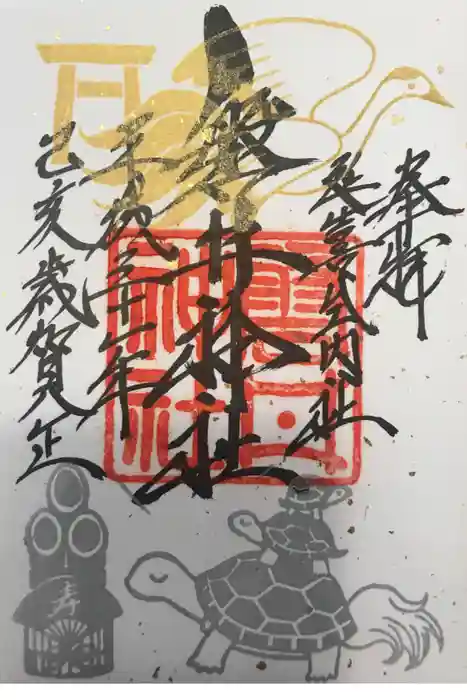 奉拝
延喜式内社
磐井神社
平成三十一年
己亥歳賀正
神社
寿